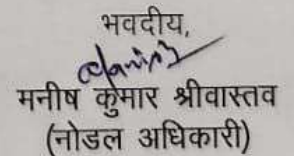 भवदीय,
मनीष कुमार श्रीवास्तव
(नोडल अधिकारी)